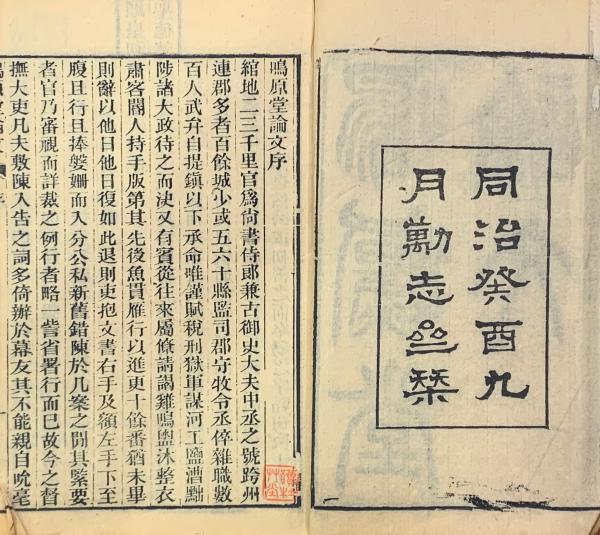 同治癸酉九
月勵志亝栞
鳴原堂論文序
綰地二三千里官爲尙書侍郞兼古御史大夫中丞之號跨州
連郡多者百餘城少或五六十縣監司郡守牧令丞倅雜職數
百人武弁自提鎭以下承命唯謹賦稅刑獄軍謀河工鹽漕黜
陟諸大政待之而決又有賓從往來屬僚請謁雞鳴盥沐整衣
肅客閽人持手版第其先後魚貫雁行以進更十餘番猶未畢
則辭以他日他日復如此退則吏抱文書右手及額左手下至
腹且行且捧媻姍而入分公私新舊錯陳於几案之閒其緊要
者官乃審視而詳裁之例行者略一嘗省署行而已故今之督
撫大吏凡夫敷陳入告之詞多倚辦於幕友其不能親自吮毫